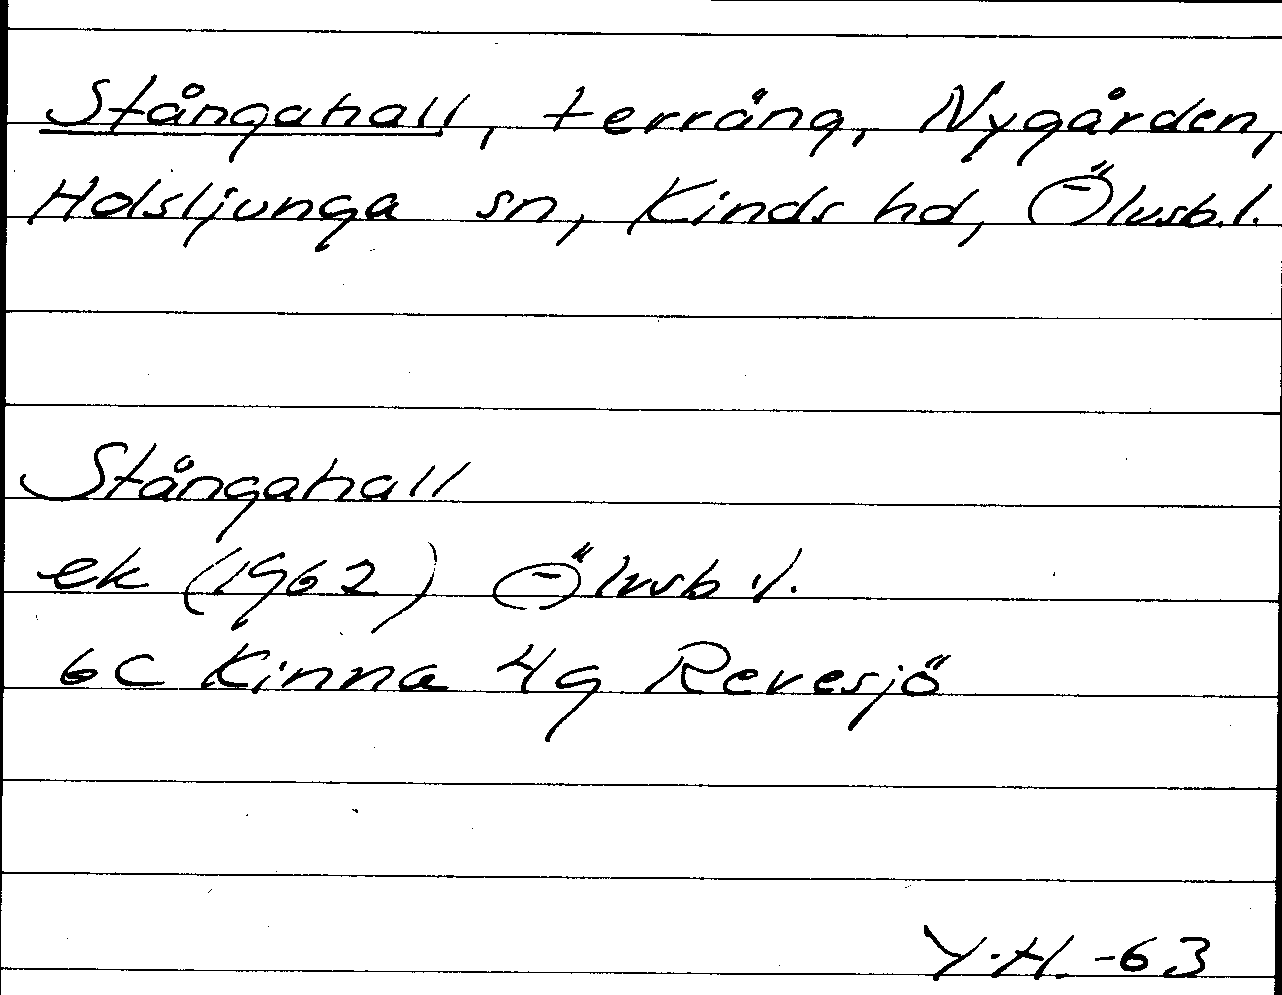 Stångahall, terräng, Nygården,
Holsljunga sn, Kinds hd, Älvsb.l.
Stångahall
ek (1962) Älvsb.l.
6C Kinna 4g Revesjö
Y.H. -63